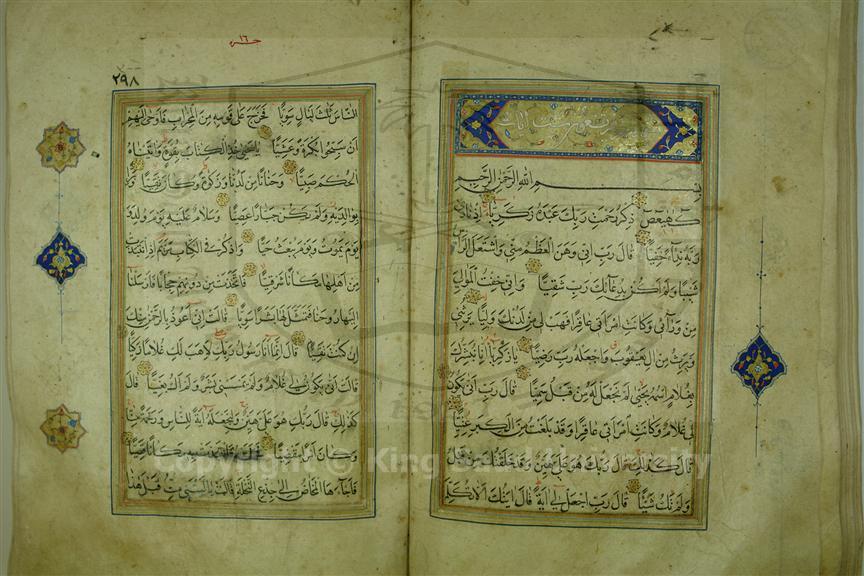 بسم الله الرحمن الرحيم
كهيعص ذكر رحمت ربك عبده زكريا اذ نادى
ربه نداء خفيا قال رب انى وهن العظم منى واشتعل الراس
شيبا ولم اكن بدعائك رب شقيا وانى خفت الموالى
من ورآئى وكانت امراتى عاقرا فهب لى من لدنك وليا يرثنى
ويرث من ال يعقوب واجعله رب رضيا يا زكريا انا نبشرك
بغلام اسمه يحيى لم نجعل له من قبل سميا قال رب انى يكون
لى غلام وكانت امراتى عاقرا وقد بلغت من الكبر عتيا
قال كذلك قال ربك هو على هين وقد خلقتك من قبل
ولم تك شيئا قال رب اجعل لى اية قال ايتك الا تكلم
جزء ١٦
٢٩٨
الناس ثلث ليال سويا فخرج على قومه من المحراب فاوحى اليهم
ان سبحوا بكرة وعشيا يا يحيى خذ الكتاب بقوة واتيناه
الحكم صبيا وحنانا من لدنا وزكوة وكان تقيا وبرا
بوالديه ولم يكن جبارا عصيا وسلام عليه يوم ولد و
يوم يموت ويوم يبعث حيا واذكر فى الكتاب مريم اذ انتبذت
من اهلها مكانا شرقيا فاتخذت من دونهم حجابا فارسلنا
اليها روحنا فتمثل لها بشرا سويا قالت انى اعوذ بالرحمن منك
ان كنت تقيا قال انما انا رسول ربك لاهب لك غلاما زكيا
قالت انى يكون لى غلام ولم يمسسنى بشر ولم اك بغيا قال
كذلك قال ربك هو على هين ولنجعله اية للناس ورحمة منا
وكان امرا مقضيا فحملته فانتبذت به مكانا قصيا
فاجآءها المخاض الى جذع النخلة قالت يا ليتنى مت قبل هذا
Copyright © King